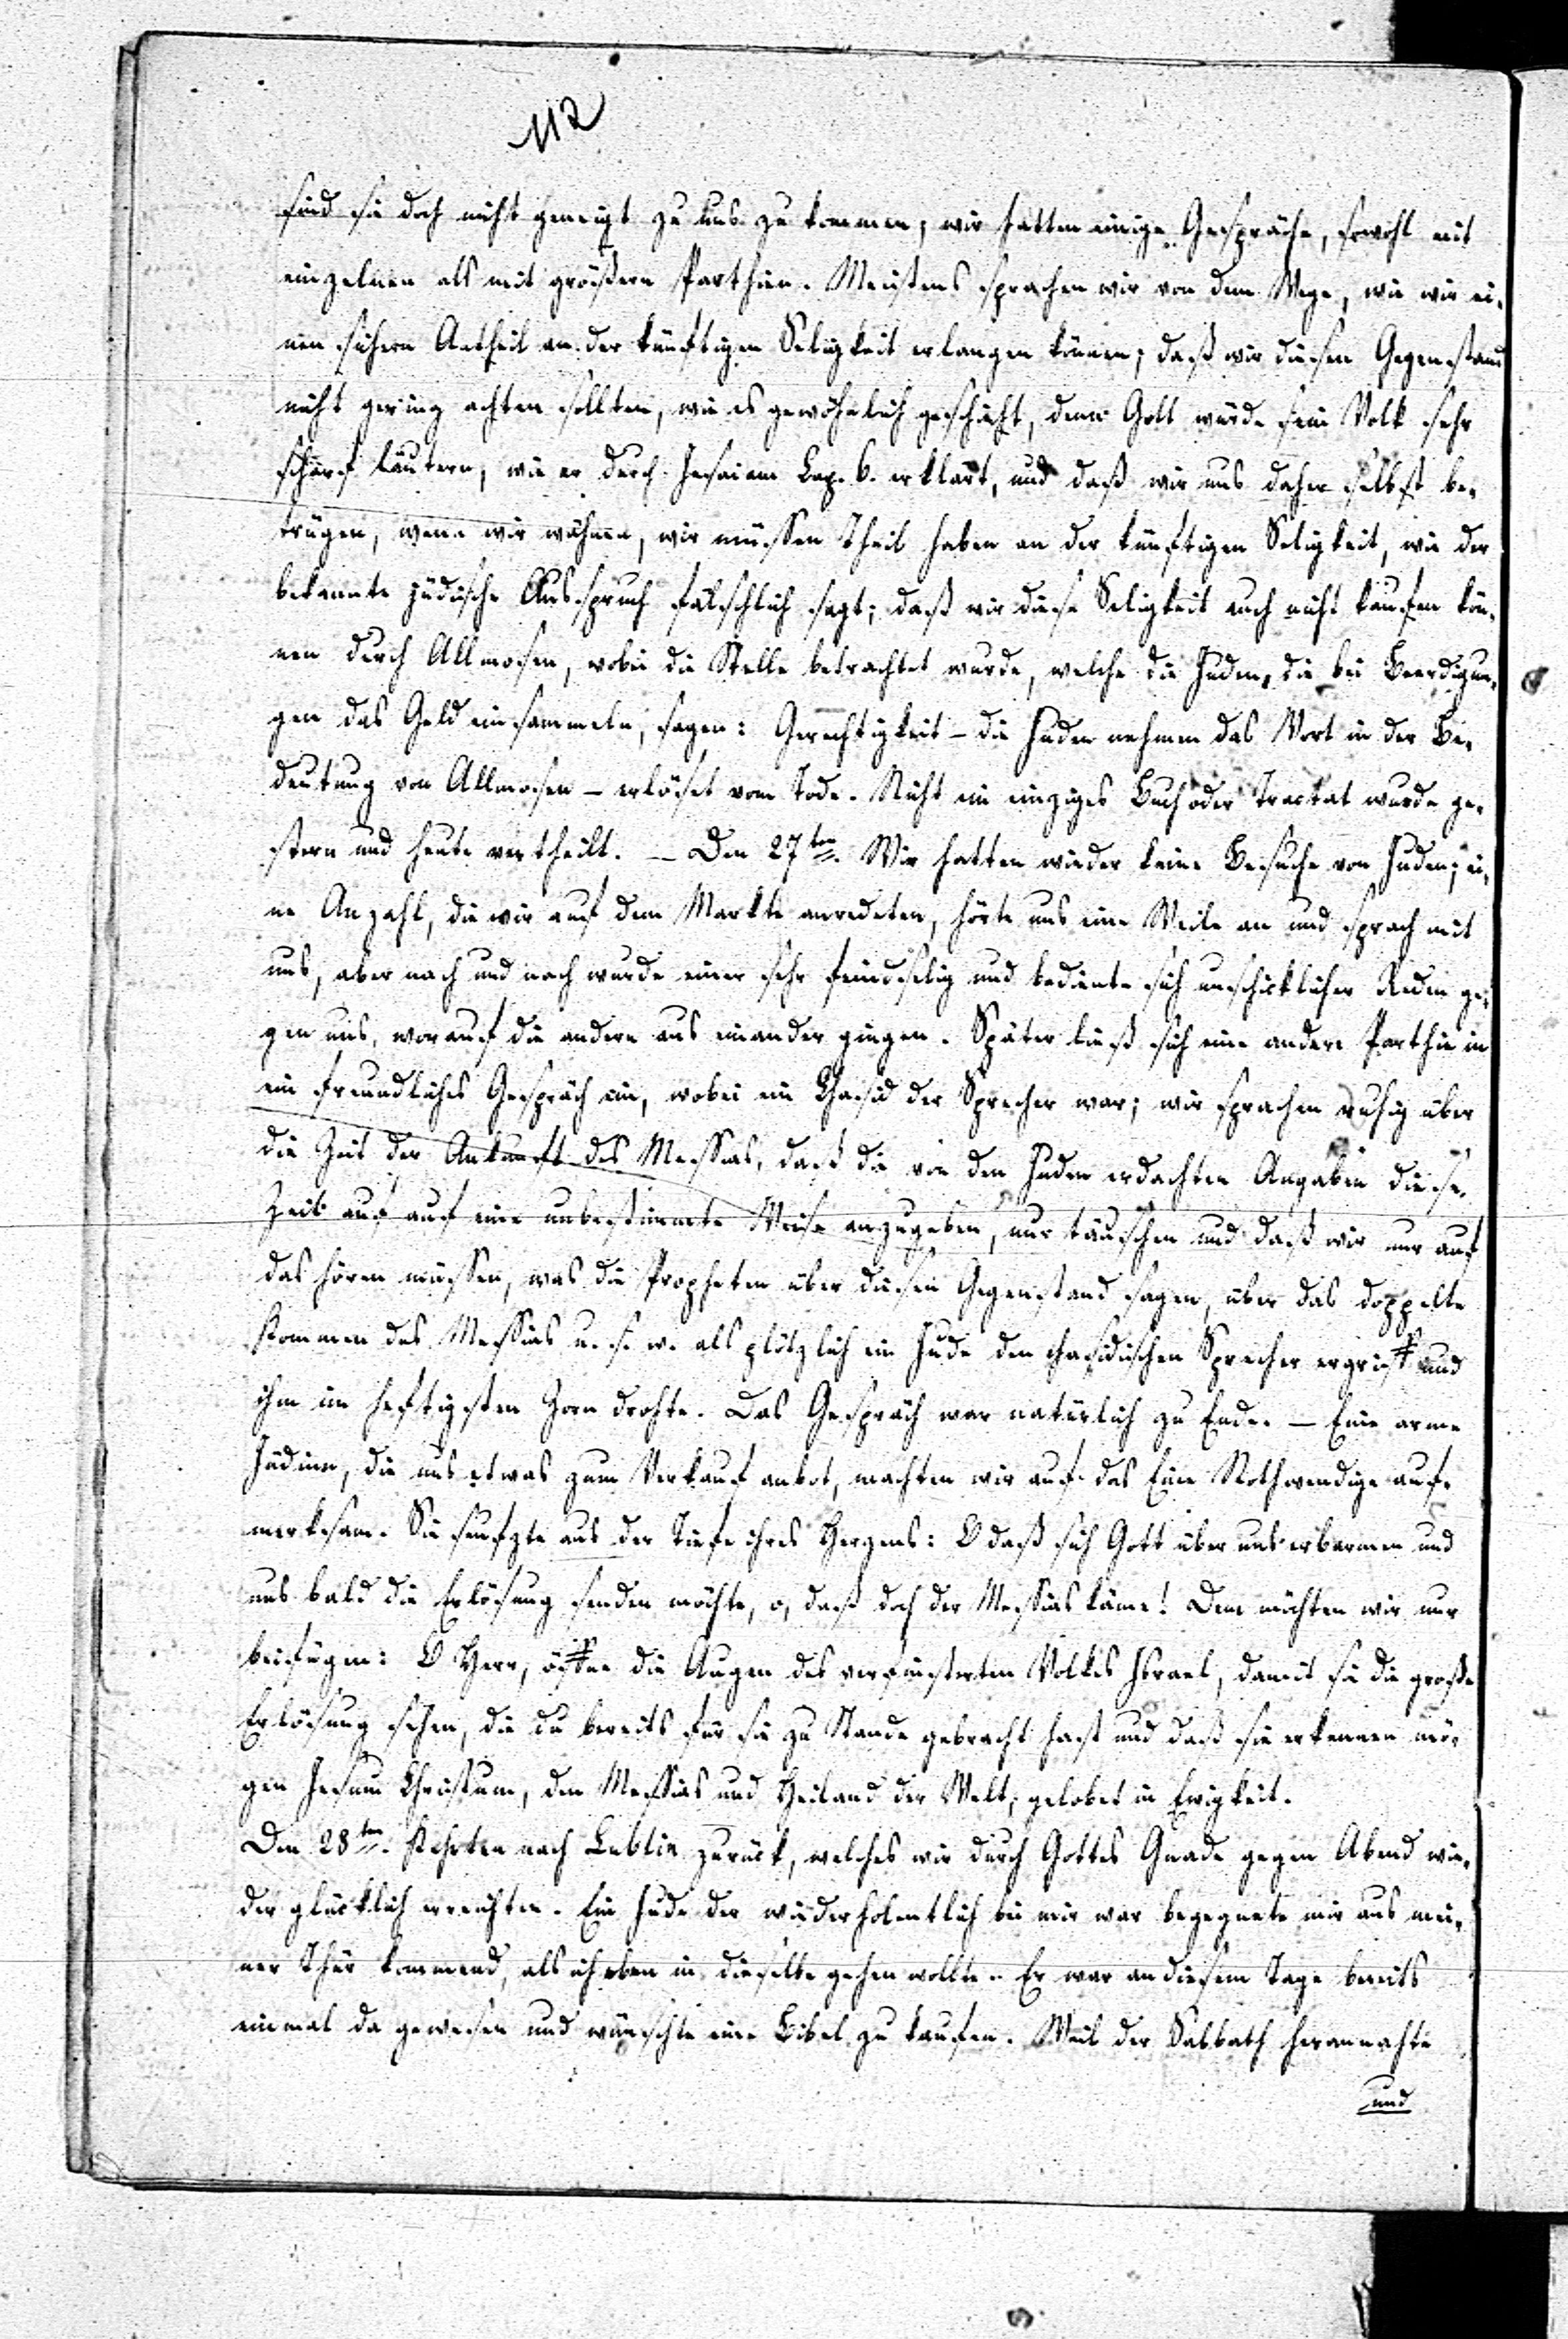 112
sind sie doch nicht geneigt zu uns zu kommen; wir hatten einige Gespräche, sowohl mit
einzelnen als mit größern Parthien. Meistens sprachen wir von dem Wege, wie wir ei-
nen sichern Antheil an der künftigen Seligkeit erlangen können; daß wir diesen Gegenstand
nicht gering achten sollten, wie es gewöhnlich geschieht, denn Gott würde sein Volk sehr
scharf läutern, wie er durch Jesaiam Cap. 6. erklärt, und daß wir uns daher selbst be-
trügen, wenn wir wähnen, wir müssen Theil haben an der künftigen Seligkeit, wie der
bekannte jüdische Ausspruch fälschlich sagt; daß wir diese Seligkeit auch nicht kaufen kön-
nen durch Allmosen, wobei die Stelle betrachtet wurde, welche die Juden, die bei Beerdigun-
gen das Geld einsammeln, sagen: Gerechtigkeit – die Juden nehmen das Wort in der Be-
deutung von Allmosen – erlöset vom Tode. Nicht ein einziges Buch oder Tractat wurde ge-
stern und heute vertheilt. – Den 27ten. Wir hatten wieder keine Besuche von Juden; ei-
ne Anzahl, die wir auf dem Markte anredeten, hörte uns eine Weile an und sprach mit
uns, aber nach und nach wurde einer sehr feindselig und bediente sich unschicklicher Reden ge-
gen uns, worauf die andern aus einander giengen. Später ließ sich eine andere Parthie in
ein freundliches Gespräch ein, wobei ein Chasid der Sprecher war; wir sprachen ruhig über
die Zeit der Ankunft des Messias, daß die von den Juden erdachten Angaben diese
Zeit auf auf eine unbestimmte Weise anzugeben, nur täuschen und daß wir nur auf
das hören müssen, was die Propheten über diesen Gegenstand sagen, über das doppelte
Kommen des Messias u. s. w. als plötzlich ein Jude den chasidischen Sprecher ergriff und
ihm im heftigsten Zorn drohte. Das Gespräch war natürlich zu Ende. – Eine arme
Jüdinn, die uns etwas zum Verkauf anbot, machten wir auf das Eine Nothwendige auf-
merksam. Sie seufzte aus der Tiefe ihres Herzens: O daß sich Gott über uns erbarmen und
uns bald die Erlösung senden möchte, o, daß doch der Messias käme! Dem möchten wir nur
beifügen: O Herr, öffne die Augen des verfinsterten Volkes Israel, damit sie die große
Erlösung sehen, die du bereits für sie zu Stande gebracht hast und daß sie erkennen mö-
gen Jesum Christum, den Messias und Heiland der Welt, gelobet in Ewigkeit.
Den 28ten. Kehrten nach Lublin zurück, welches wir durch Gottes Gnade gegen Abend wie-
der glücklich erreichten. Ein Jude der wiederholentlich bei mir war begegnete mir aus mei-
ner Thür kommend, als ich eben in dieselbe gehen wollte. Er war an diesem Tage bereits
einmal da gewesen und wünschte eine Bibel zu kaufen. Weil der Sabbath herannahte
und